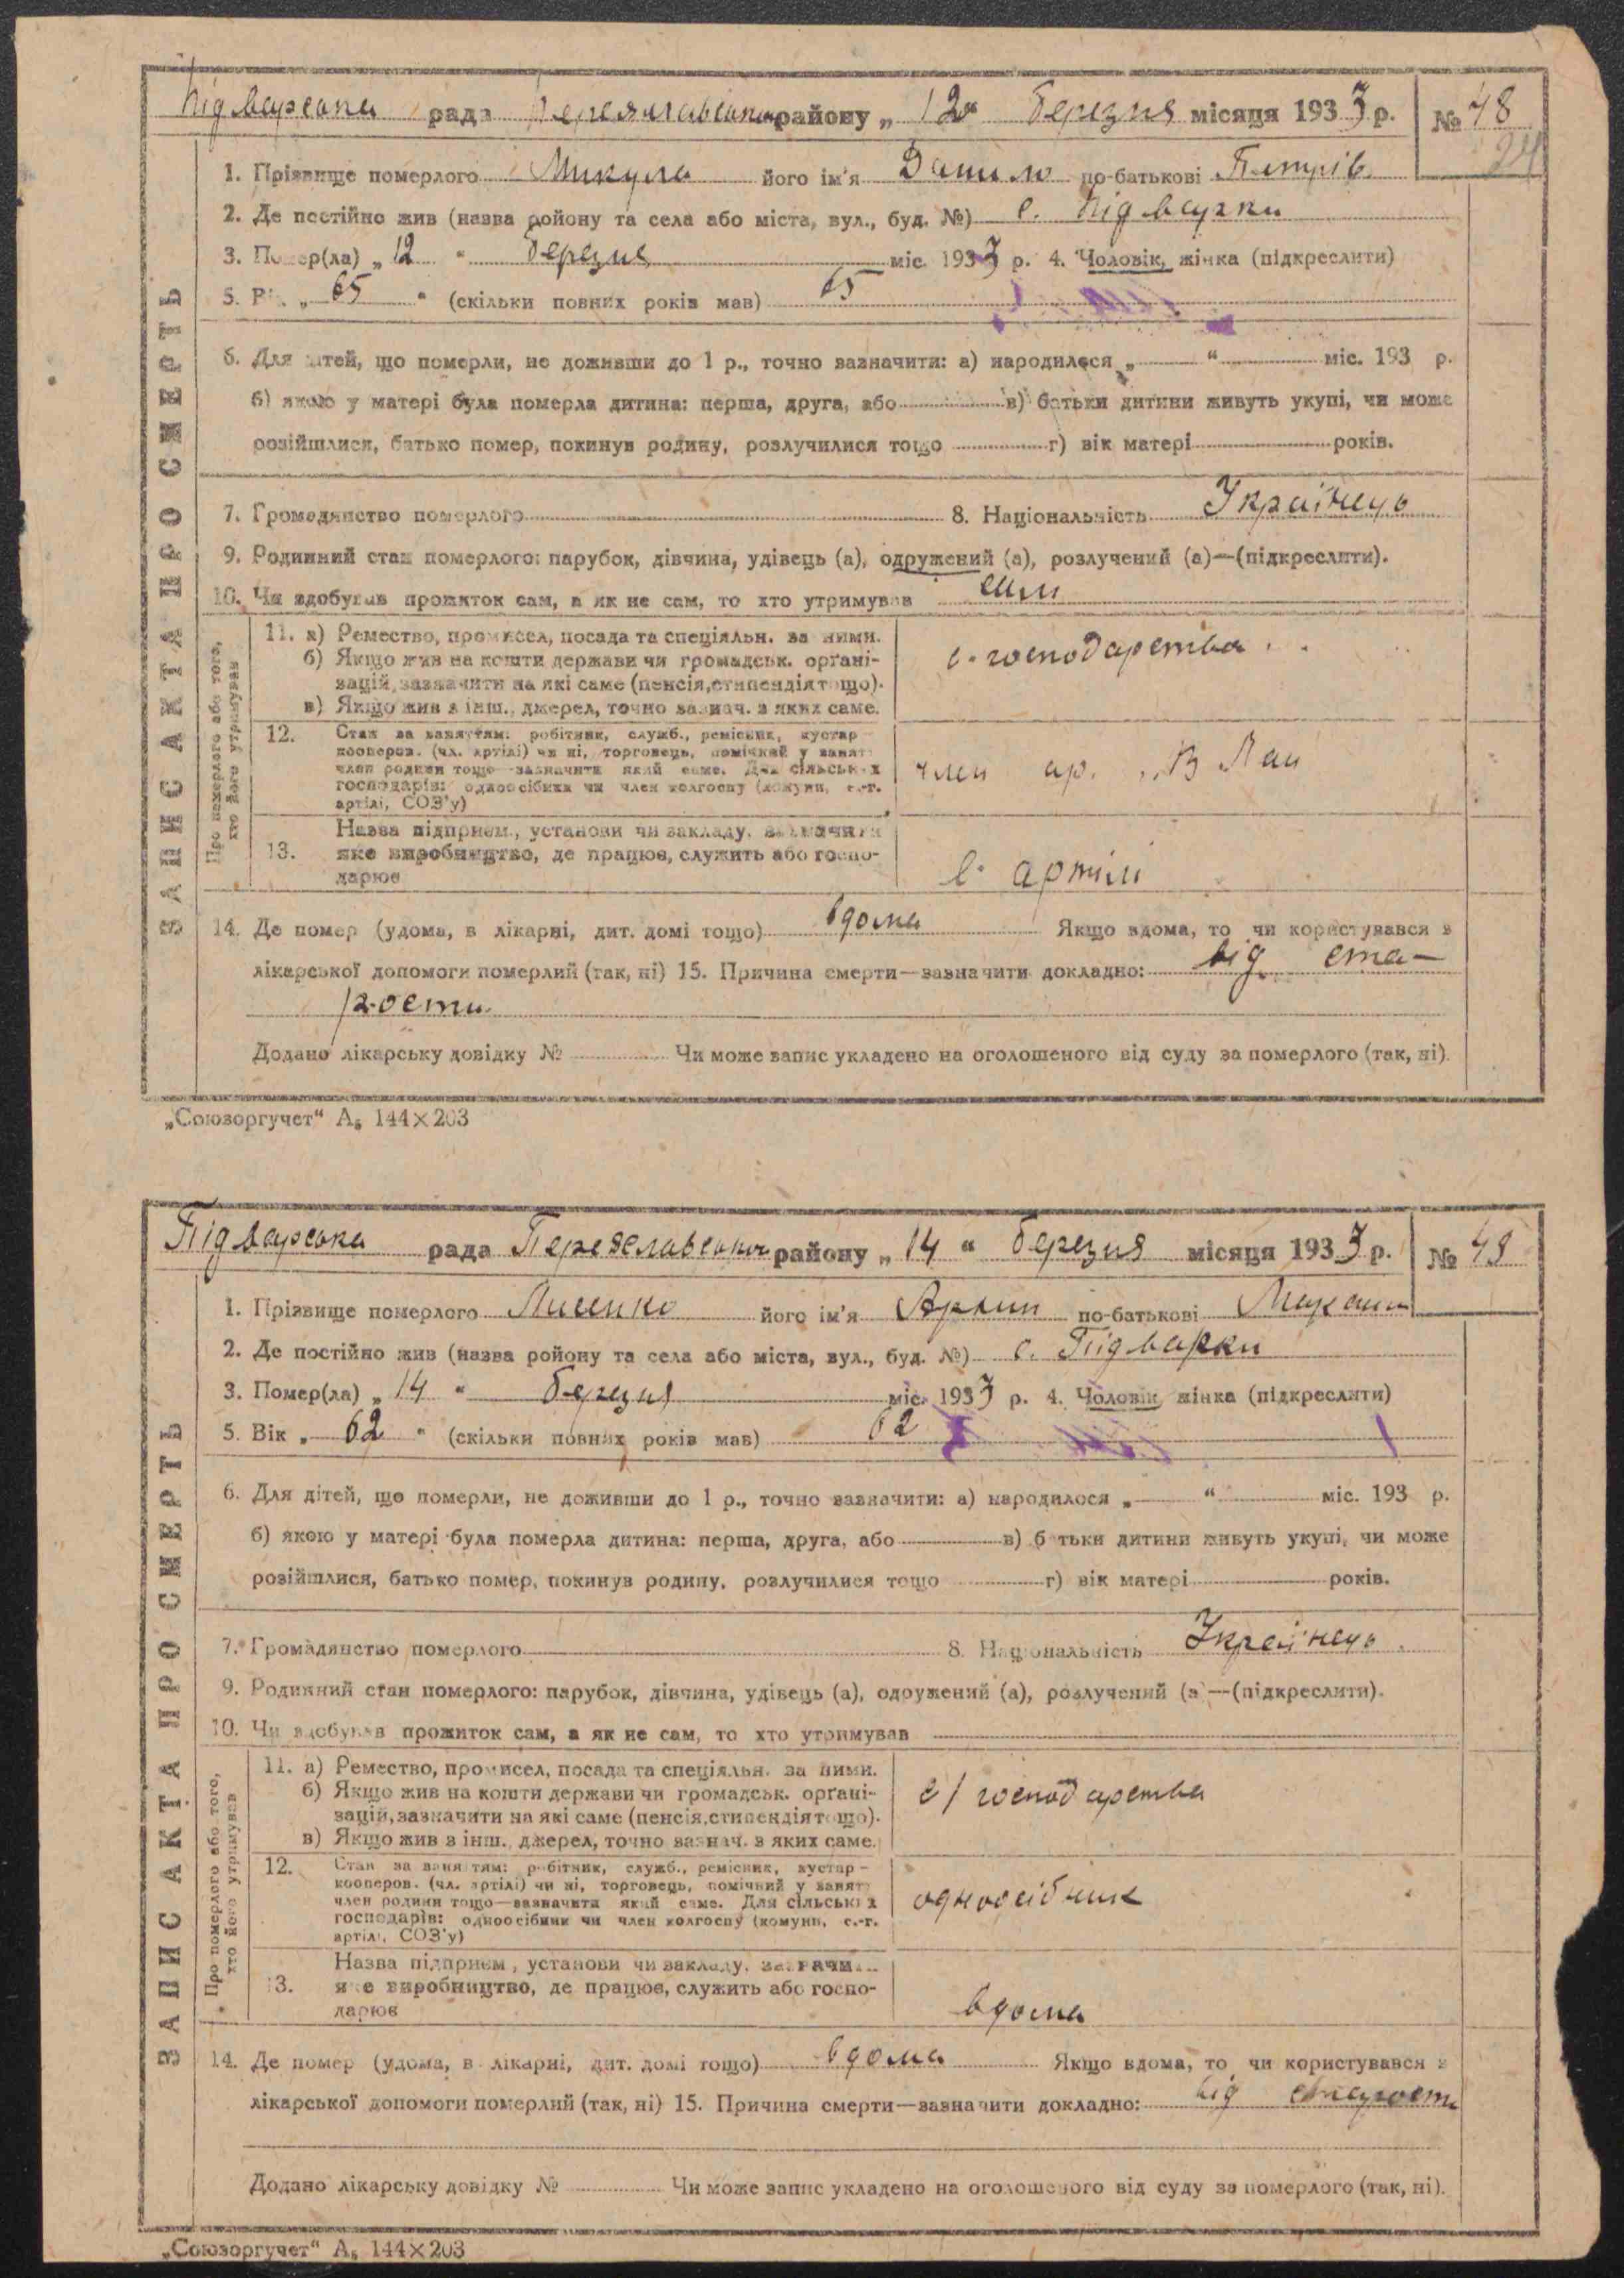 Підварська рада Переяславського району „ 12 “ березня місяця 1933 р. № 48
24
1. Прізвище померлого Микула його ім'я Данило по-батькові Петрів
2. Де постійно жив (назва ройону та села або міста, вул., буд. №) с. Підварки
3. Помер(ла) „ 12 “ березня міс. 1933 р. 4. Чоловік, жінка (підкреслити)
5. Вік „ 65 “ (скільки повних років мав) 65
6. Для дітей, що померли, не доживши до 1 р., точно зазначити: а) народилося „ “ міс. 193 р.
б) якою у матері була померла дитина: перша, друга, або в) батьки дитини живуть укупі, чи може
розійшлися, батько помер, покинув родину, розлучилися тощо г) вік матері років.
7. Громадянство померлого 8. Національність Українець
9. Родинний стан померлого: парубок, дівчина, удівець (а), одружений (а), розлучений (а)—(підкреслити).
10. Чи здобував прожиток сам, а як не сам, то хто утримував сам
ЗАПИС АКТА ПРО СМЕРТЬ
Про померлого або того,
хто його утримував
11. а) Ремество, промисел, посада та спеціяльн. за ними.
б) Якщо жив на кошти держави чи громадськ. орґані-
зацій, зазначити на які саме (пенсія, стипендія тощо).
в) Якщо жив з інш., джерел, точно зазнач. з яких саме.
с. господарства
12. Стан за заняттям: робітник, служб., ремісник, кустар—
кооперов. (чл. артілі) чи ні, торговець, помічний у занят.
член родини тощо—зазначити який саме. Для сільських
господарів: одноосібник чи член колгоспу (комуни, с.-г.
артілі, СОЗ'у)
член ар.
13. Назва підприєм., установи чи закладу, зазначити
яке виробництво, де працює, служить або госпо-
дарює
в артілі
14. Де помер (удома, в лікарні, дит. домі тощо) вдома Якщо вдома, то чи користувався з
лікарської допомоги померлий (так, ні) 15. Причина смерти—зазначити докладно: від ста-
рости
Додано лікарську довідку № Чи може запис укладено на оголошеного від суду за померлого (так, ні).
„Союзоргучет“ А5 144×203
Підварська рада Переяславського району „ 14 “ березня місяця 1933 р. № 49
1. Прізвище померлого Лисенко його ім'я Архип по-батькові
2. Де постійно жив (назва ройону та села або міста, вул., буд. №) с. Підварки
3. Помер(ла) „ 14 “ березня міс. 1933 р. 4. Чоловік, жінка (підкреслити)
5. Вік „ 62 “ (скільки повних років мав) 62
6. Для дітей, що померли, не доживши до 1 р., точно зазначити: а) народилося „ “ міс. 193 р.
б) якою у матері була померла дитина: перша, друга, або в) батьки дитини живуть укупі, чи може
розійшлися, батько помер, покинув родину, розлучилися тощо г) вік матері років.
7. Громадянство померлого 8. Національність Українець
9. Родинний стан померлого: парубок, дівчина, удівець (а), одружений (а), розлучений (а)—(підкреслити).
10. Чи здобував прожиток сам, а як не сам, то хто утримував
ЗАПИС АКТА ПРО СМЕРТЬ
Про померлого або того,
хто його утримував
11. а) Ремество, промисел, посада та спеціяльн. за ними.
б) Якщо жив на кошти держави чи громадськ. орґані-
зацій, зазначити на які саме (пенсія, стипендія тощо).
в) Якщо жив з інш., джерел, точно зазнач. з яких саме.
с/господарства
12. Стан за заняттям: робітник, служб., ремісник, кустар—
кооперов. (чл. артілі) чи ні, торговець, помічний у занят.
член родини тощо—зазначити який саме. Для сільських
господарів: одноосібник чи член колгоспу (комуни, с.-г.
артілі, СОЗ'у)
одноосібник
13. Назва підприєм., установи чи закладу, зазначити
яке виробництво, де працює, служить або госпо-
дарює
вдома
14. Де помер (удома, в лікарні, дит. домі тощо) вдома Якщо вдома, то чи користувався з
лікарської допомоги померлий (так, ні) 15. Причина смерти—зазначити докладно: від старости
Додано лікарську довідку № Чи може запис укладено на оголошеного від суду за померлого (так, ні).
„Союзоргучет“ А5 144×203